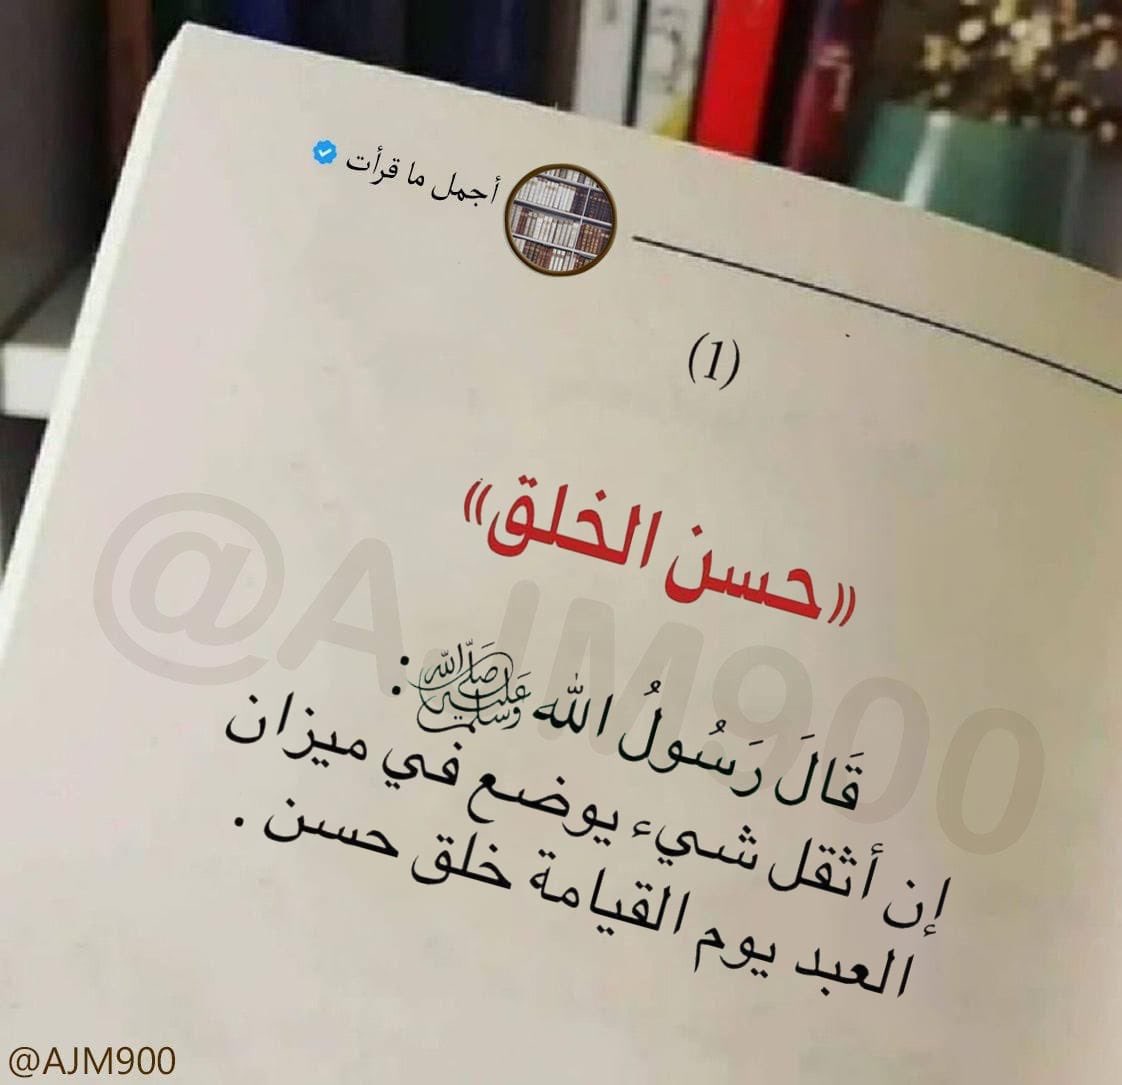 أجمل ما قرأت
(1)
«حسن الخلق»
قَالَ رَسُولُ الله ﷺ :
إن أثقل شيء يوضع في ميزان
العبد يوم القيامة خلق حسن .
@AJM900
@AJM900